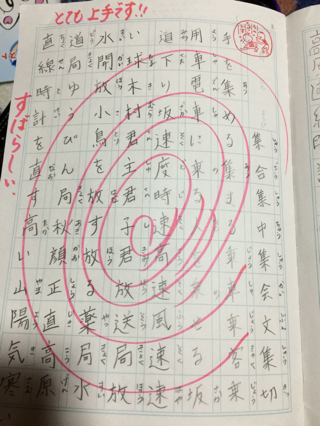 とても上手です!!
集合集中集会文集切
手を集める集まる
用車電車に乗
道下り坂速度時速高速風速速
い球木村君主君子君放送局放
水開放小鳥を放す放る薬局水
道局ゆうびん局秋顔正直高原
直線時計を直す高い山陽気寒
すばらしい